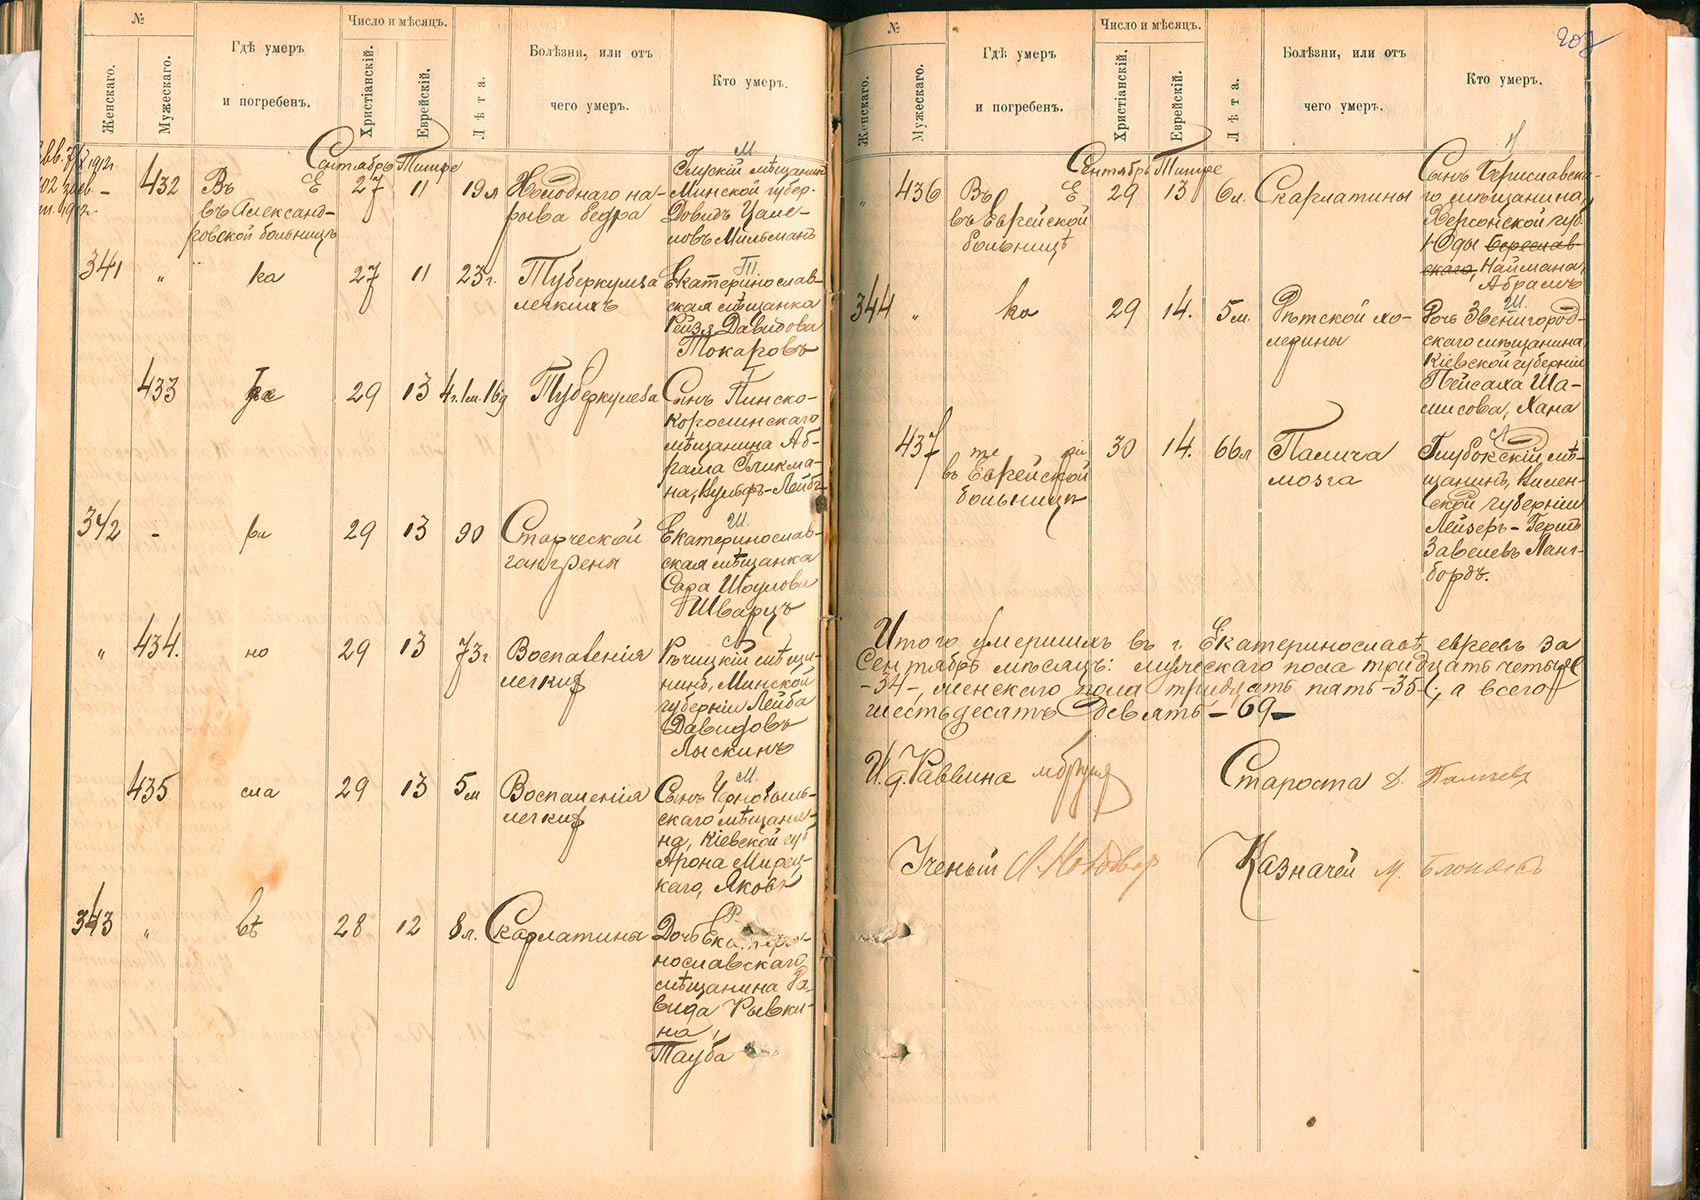 №
Число и мѣсяцъ.
Женскаго.
Мужескаго.
Гдѣ умеръ
и погребенъ.
Христіанскій.
Еврейскій.
Лѣта.
Болѣзни, или отъ
чего умеръ.
Кто умеръ.
Сентябрь Тишре
432
Въ Е
въ Александ-
ровской больницѣ
27
11
19л
Холоднаго на-
рыва бедра
М
Глускій мѣщанинъ
Минской губер.
Довидъ Цале-
ловъ Мильманъ
341
"
ка
27
11
23г.
Туберкулеза
легкихъ
Т
Екатеринослав-
ская мѣщанка
Рейзя Давидова
Токаровъ
433
те
29
13
4г.1м.16д
Туберкулеза
Сынъ Пинско-
Каролинскаго
мѣщанина Аб-
рама Гликма-
на, Вульфъ-Лейбъ
342
-
ри
29
13
90
Старческой
гангрены
Ш.
Екатеринослав-
ская мѣщанка
Сара Шоулова
Шварцъ
"
434.
но
29
13
73г
Воспаленія
легкихъ
Л
Рѣчицкій мѣща-
нинъ, Минской
губерніи Лейба
Давидовъ
Лыскинъ
435
сла
29
13
5м
Воспаленія
легкихъ
М.
Сынъ Чернобыль-
скаго мѣщани-
на, Кіевской губ
Арона Мирец-
каго, Яковъ
343
"
вѣ
28
12
8л.
Скарлатины
Р.
Дочь Екатери-
нославскаго
мѣщанина Да-
вида Рывки-
на,
Тауба
№
Число и мѣсяцъ.
Женскаго.
Мужескаго.
Гдѣ умеръ
и погребенъ.
Христіанскій.
Еврейскій.
Лѣта.
Болѣзни, или отъ
чего умеръ.
Кто умеръ.
Сентябрь Тишре
"
436
Въ Е
въ Еврейской
больницѣ
29
13
6л.
Скарлатины
Н
Сынъ Бериславска-
го мѣщанина,
Херсонской губ.
Юды Береслав-
скаго Наймана,
Абрамъ
344
"
ка
29
14.
5м.
Дѣтской хо-
лерины
Ш.
Дочь Звенигород-
скаго мѣщанина,
Кіевской губерніи
Пейсаха Ша-
мисова, Хана
437
те ри
въ Еврейской
больницѣ
30
14.
66л
Паралича
мозга
Л
Глубокскій мѣ-
щанинъ, Вилен-
ской губерніи
Лейзеръ-Гершъ
Завелевъ Ланг-
бордъ.
Итого умершихъ въ г. Екатеринославѣ евреевъ за
Сентябрь мѣсяцъ: мужескаго пола тридцать четыре
-34-, женскаго пола тридцать пять -35-, а всего
шестьдесятъ девять -69-
И. д. Раввина
Староста
Ученый
Казначей М.